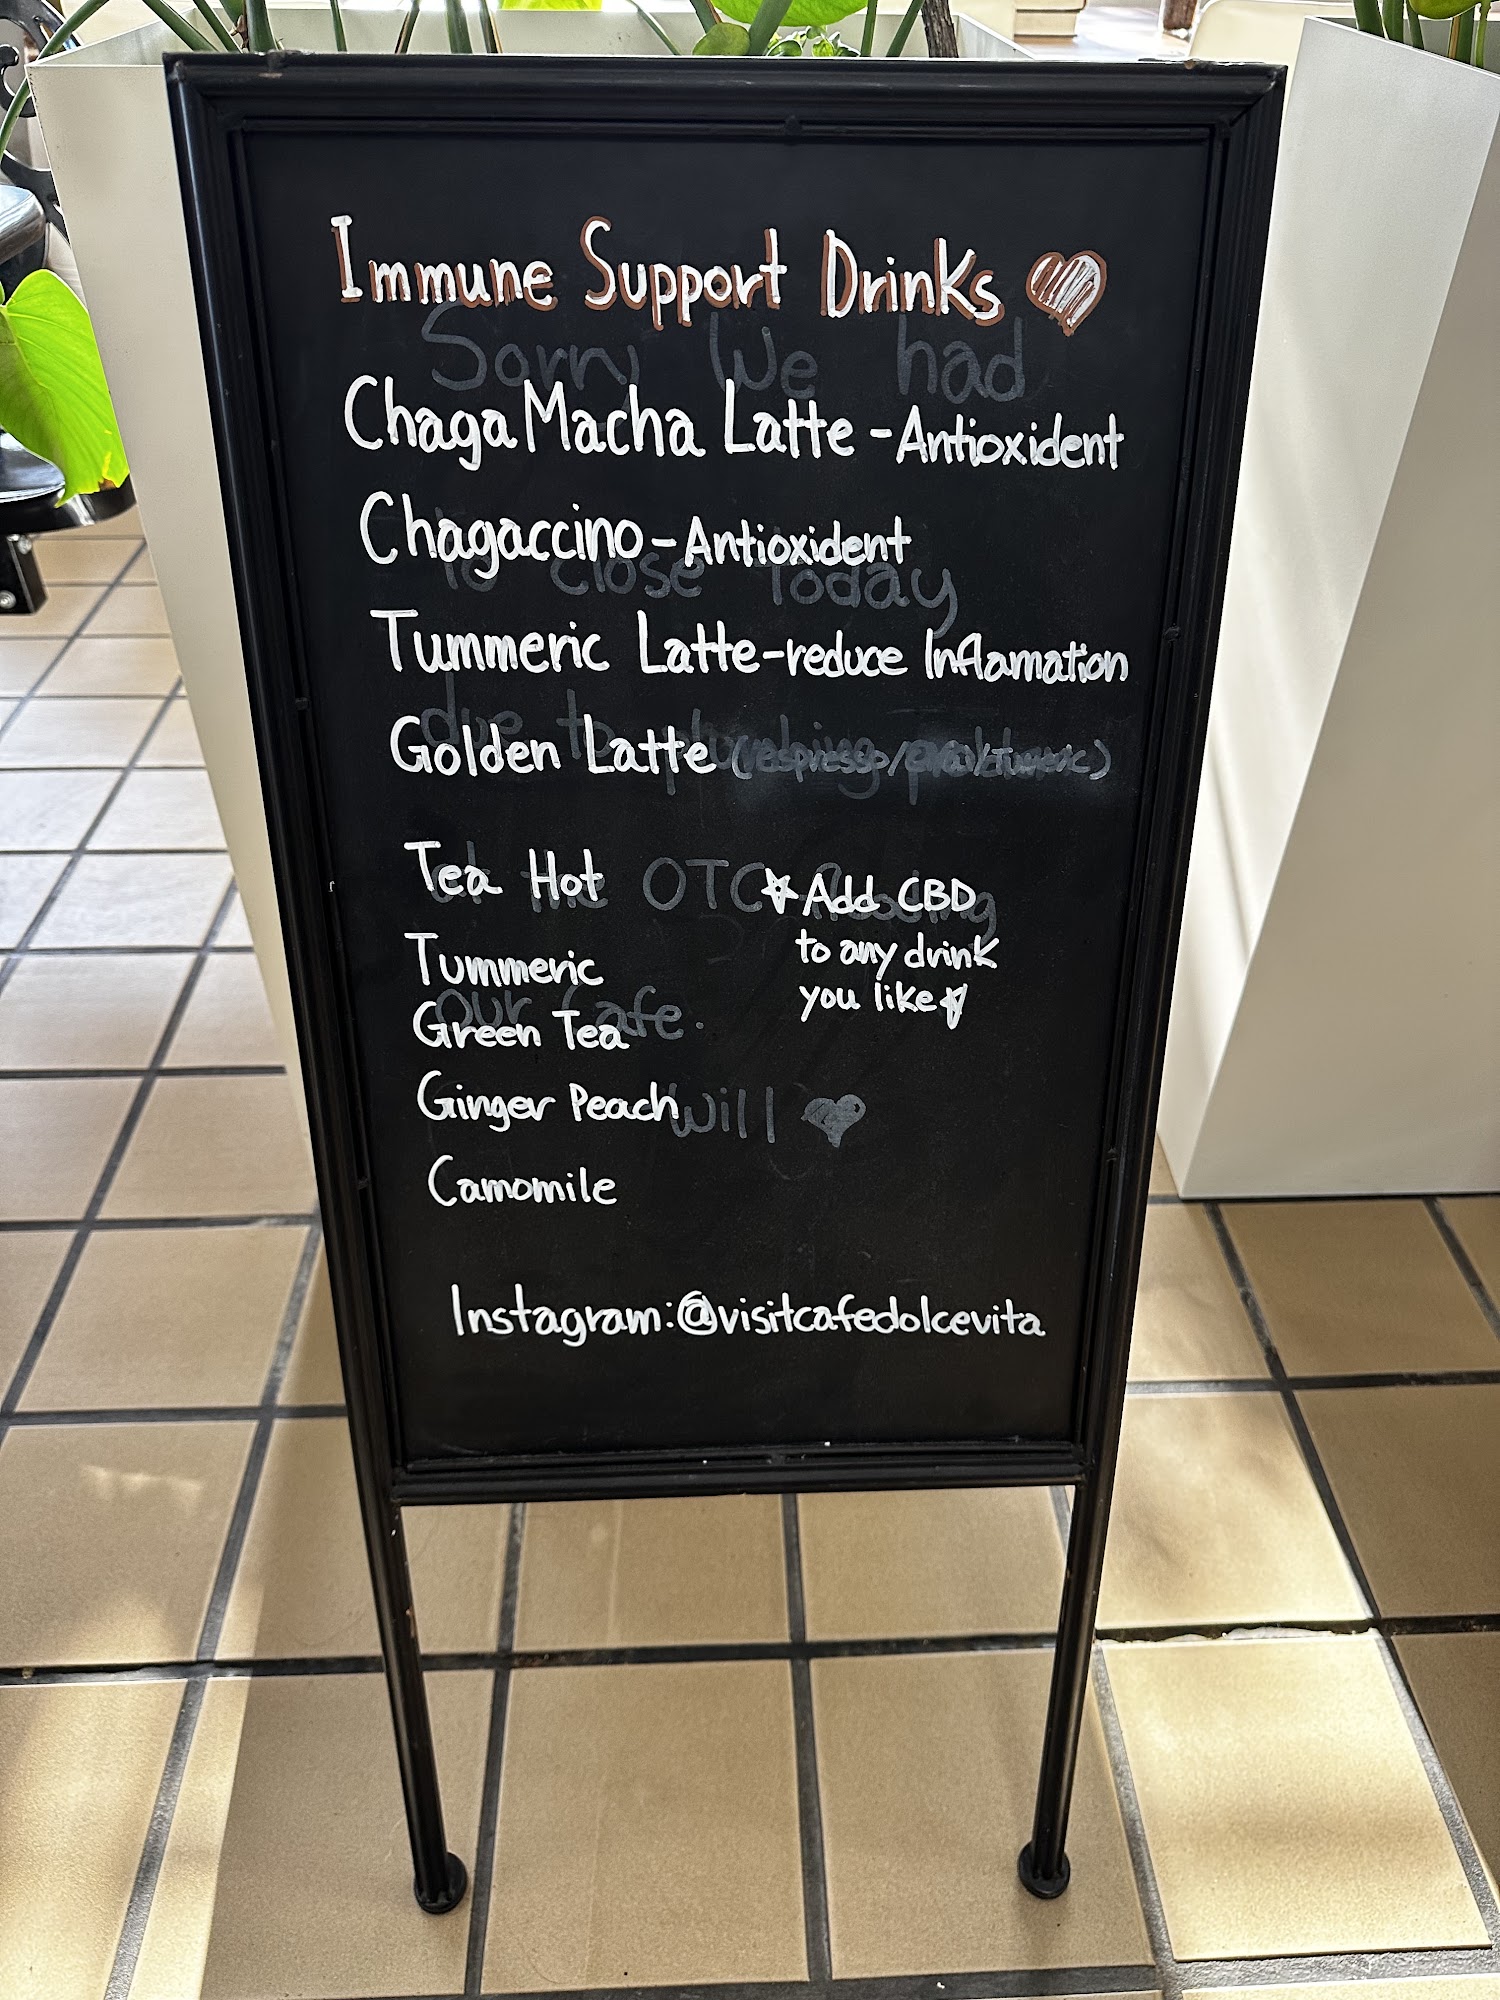 Immune Support Drinks
Sorry We had
Chaga Macha Latte - Antioxident
Chagaccino - Antioxident
To close Today
Tummeric Latte - reduce Inflamation
due to plumbing
Golden Latte (espresso/
Tea Hot
OTC flooding
☆ Add CBD
to any drink
you like ☆
Tummeric
our Cafe.
Green Tea
Ginger Peach
Will ♥
Camomile
Instagram:@visitcafedolcevita